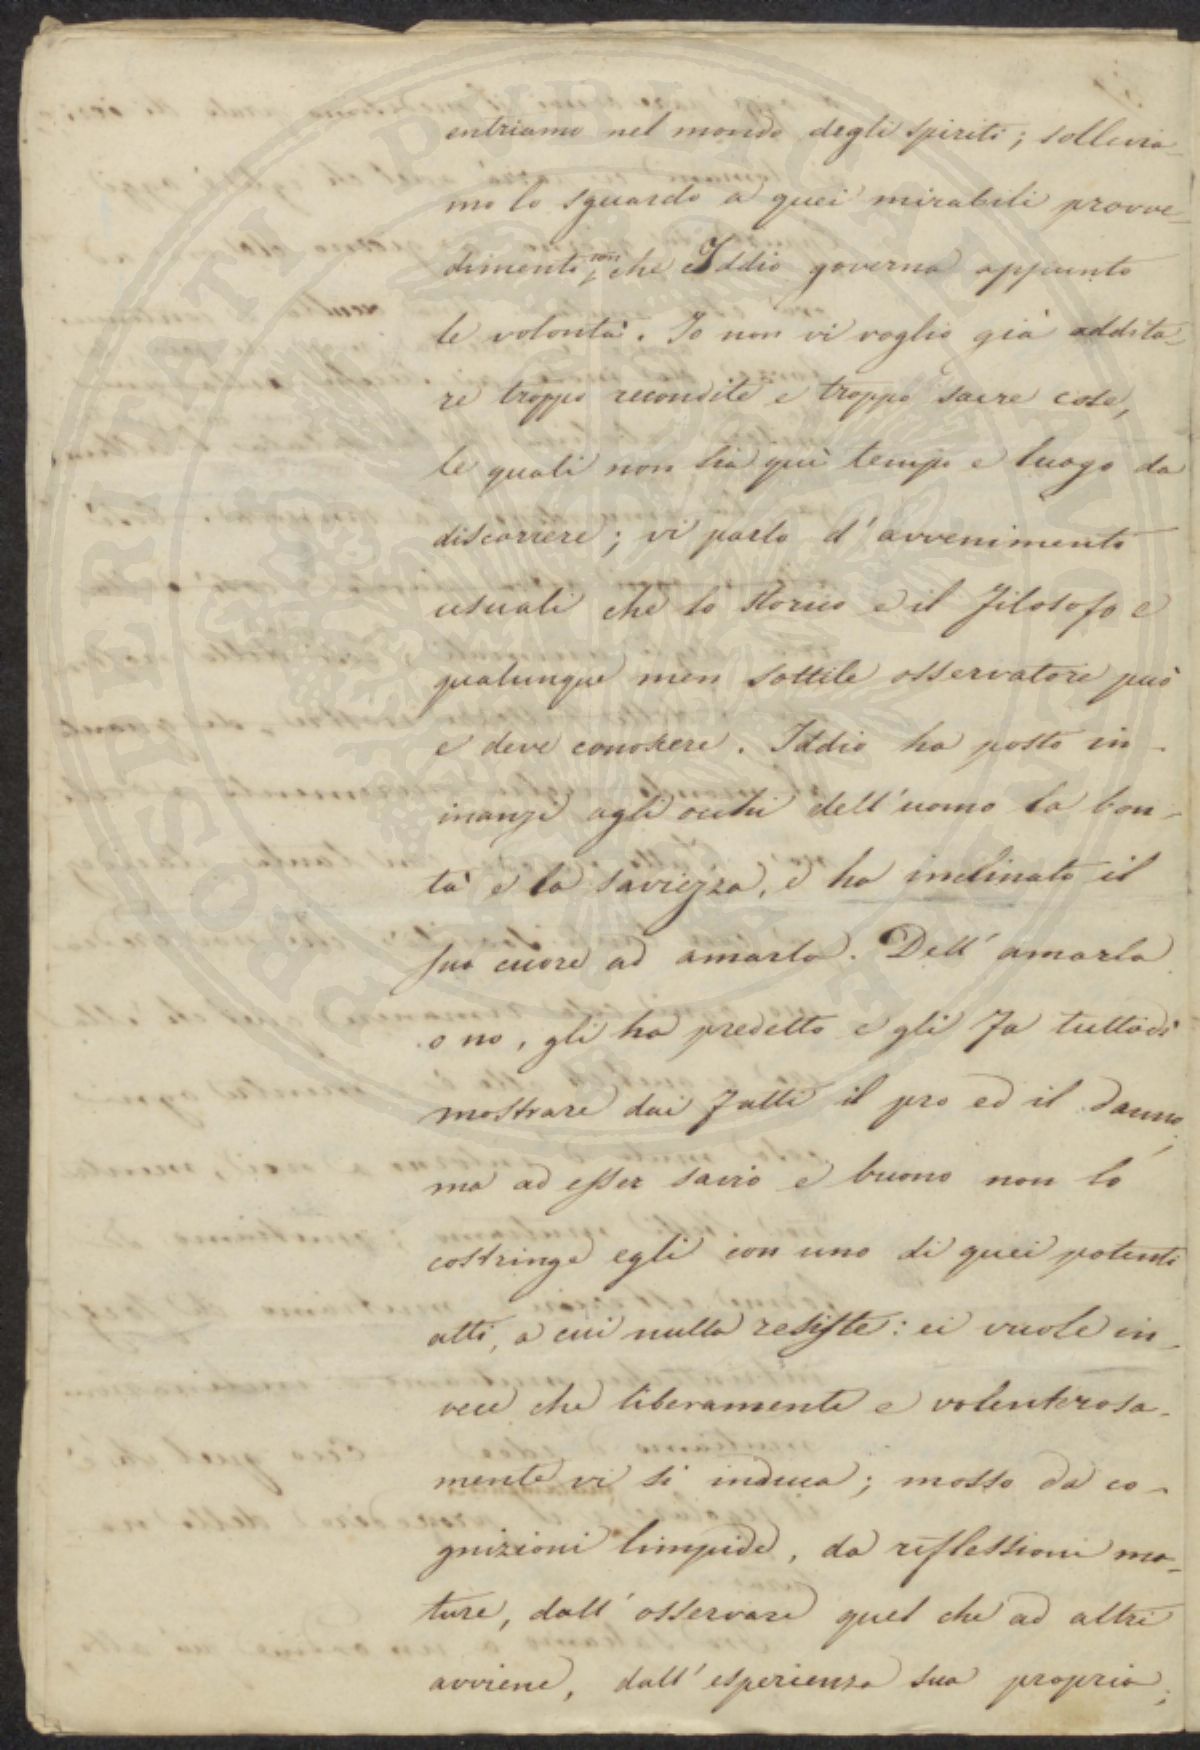 entriamo nel mondo degli spiriti; sollevia-
mo lo sguardo a quei mirabili provve-
dimenti con che Iddio governa appunto
le volontà. Io non vi voglio già addita-
re troppo recondite e troppo sacre cose,
le quali non sia quì tempo e luogo da
discorrere; vi parlo d'avvenimenti
usuali che lo storico e il filosofo e
qualunque men sottile osservatore può
e deve conoscere. Iddio ha posto in-
inanzi agli occhi dell'uomo la bon-
tà e la saviezza, e ha inclinato il
suo cuore ad amarla. Dell'amarla
o no, gli ha predetto e gli fa tuttodì
mostrare dai fatti il pro ed il danno;
ma ad esser savio e buono non lo
costringe egli con uno di quei potenti
atti, a cui nulla resiste: ei vuole in-
vece che liberamente e volenterosa-
mente vi si induca; mosso da co-
gnizioni limpide, da riflessioni ma-
ture, dall'osservare quel che ad altri
avviene, dall'esperienza sua propria;
PROSPERITATI PVBLICAE AVGENDAE